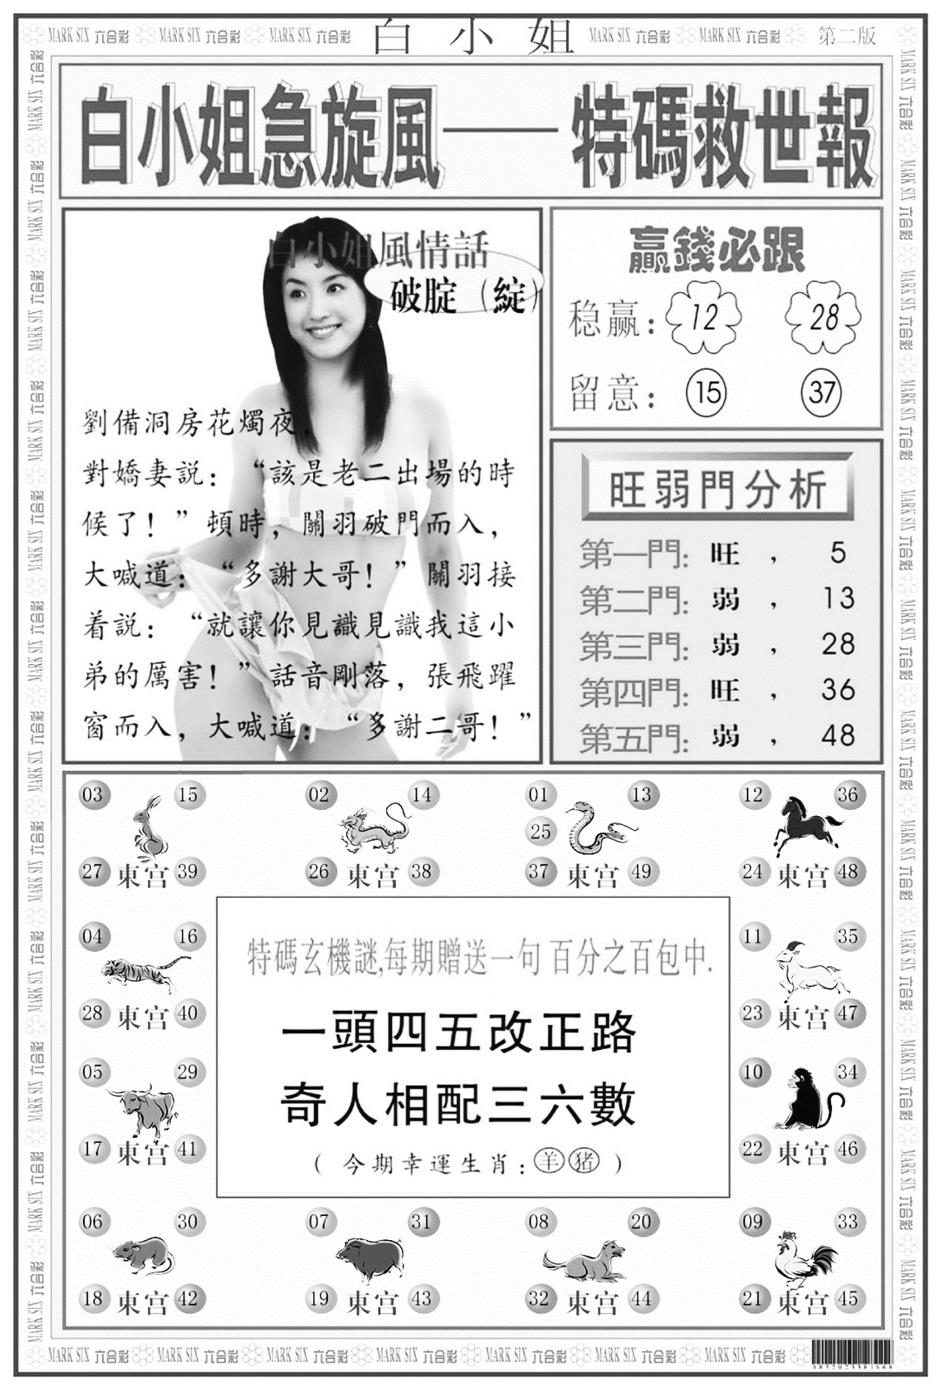 MARK SIX 六合彩 MARK SIX 六合彩 MARK SIX 六合彩 白小姐 MARK SIX 六合彩 MARK SIX 六合彩 第二版
白小姐急旋風——特碼救世報
白小姐風情話
破腚（綻）
劉備洞房花燭夜，
對嬌妻説：“該是老二出場的時
候了！”頓時，關羽破門而入，
大喊道：“多謝大哥！”關羽接
着説：“就讓你見識見識我這小
弟的厲害！”話音剛落，張飛躍
窗而入，大喊道：“多謝二哥！”
贏錢必跟
稳赢：12 28
留意：15 37
旺弱門分析
第一門：旺，5
第二門：弱，13
第三門：弱，28
第四門：旺，36
第五門：弱，48
03 15 02 14 01 13 12 36
25
27 東宫 39 26 東宫 38 37 東宫 49 24 東宫 48
04 16
28 東宫 40
05 29
17 東宫 41
特碼玄機謎,每期贈送一句 百分之百包中.
一頭四五改正路
奇人相配三六數
（今期幸運生肖：羊猪）
11 35
23 東宫 47
10 34
22 東宫 46
06 30 07 31 08 20 09 33
18 東宫 42 19 東宫 43 32 東宫 44 21 東宫 45
MARK SIX 六合彩 MARK SIX 六合彩 MARK SIX 六合彩 MARK SIX 六合彩 MARK SIX 六合彩 MARK SIX 六合彩 MARK SIX 六合彩